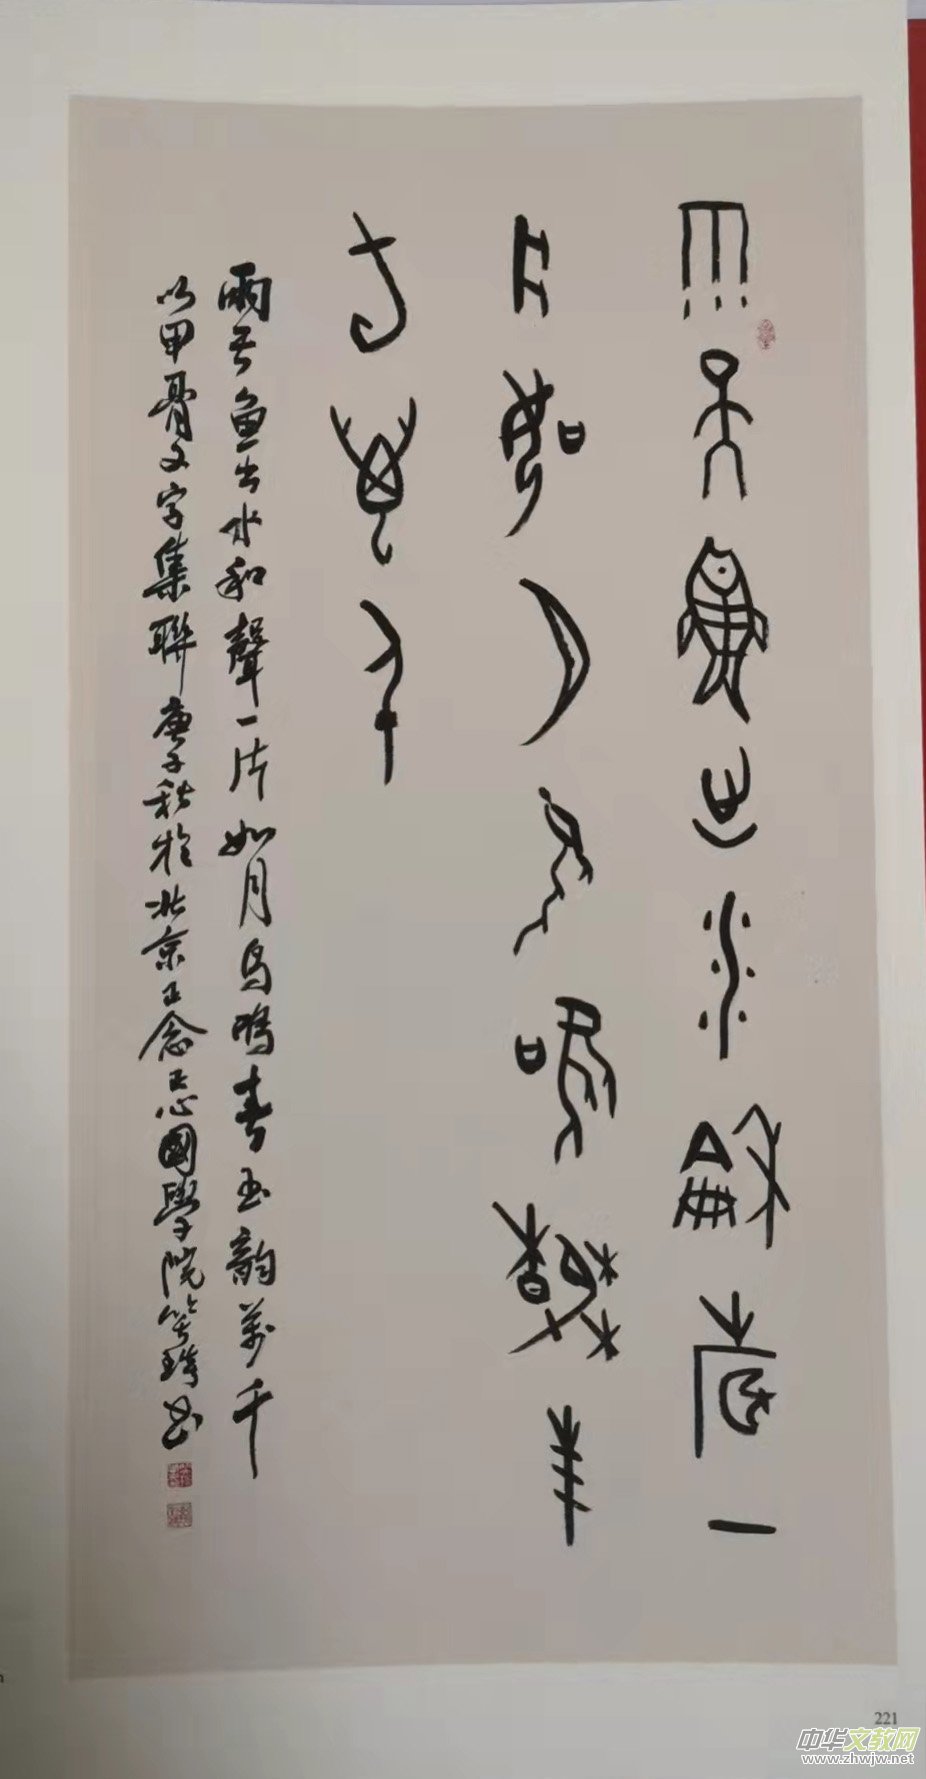 雨天魚出水龢聲一
片如月鳥鳴春玉
萬千
雨魚出水和聲一片如月鳥鳴春玉韵萬千
以甲骨文字集聯庚子秋於北京正念正心國學院書
221
中华文教网
www.zhwjw.net